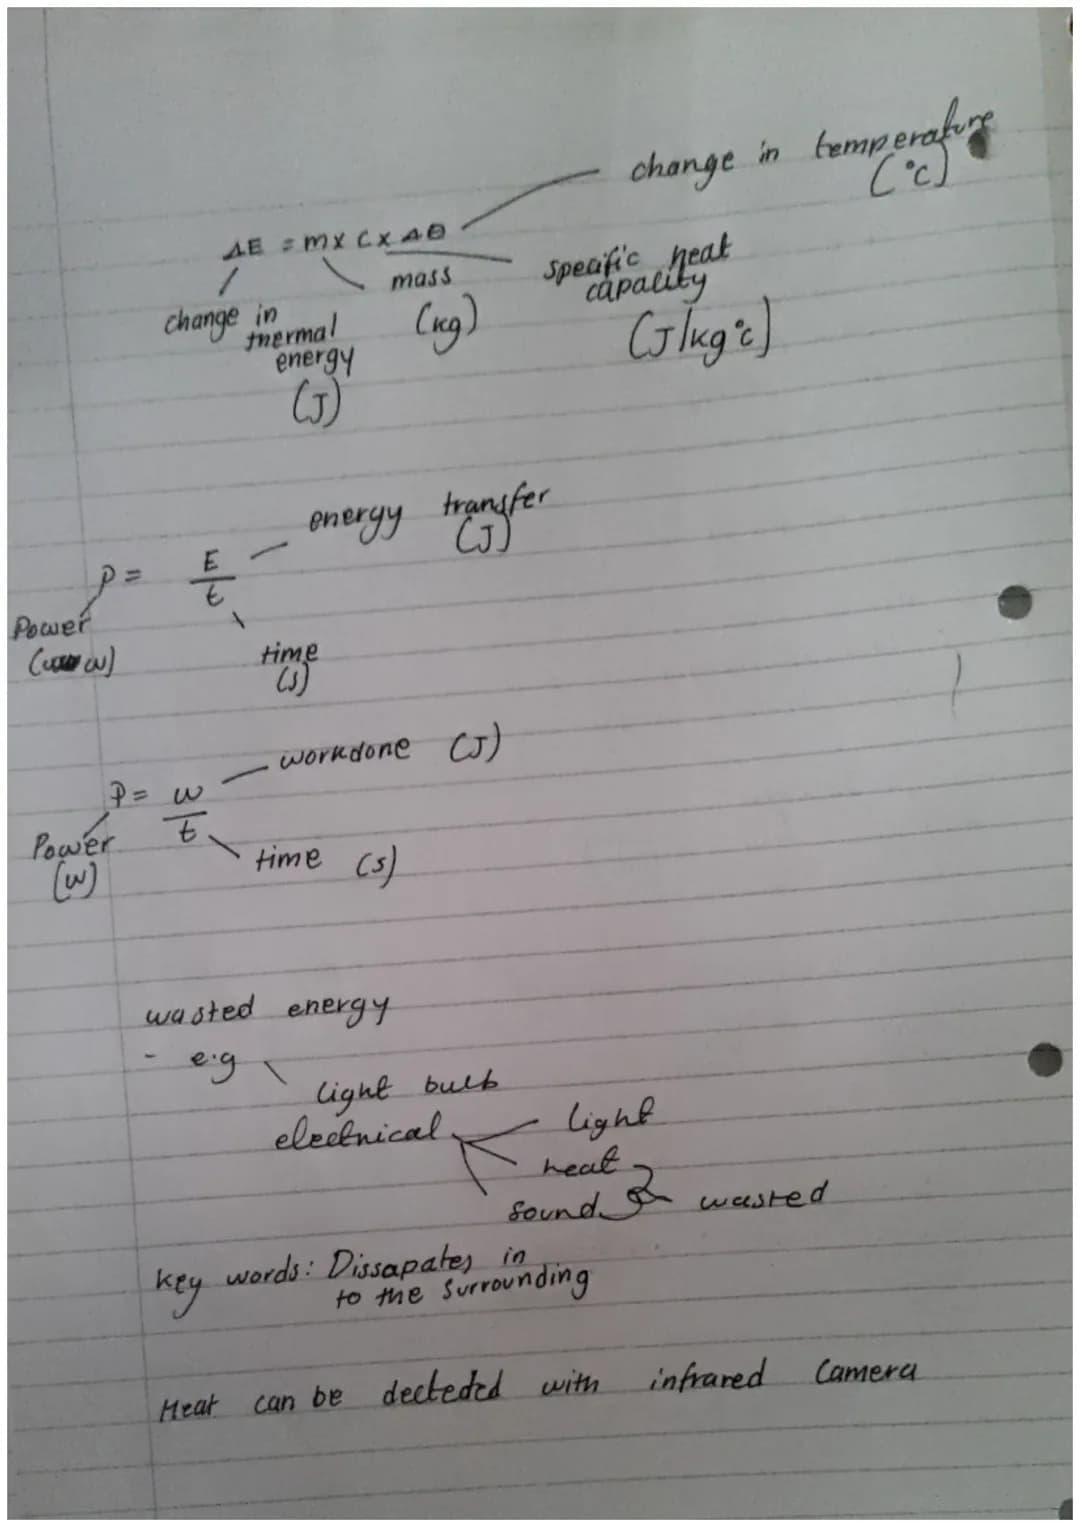 change in temperature
(°C)
ΔE = m x C x Δθ
mass
(kg)
specific heat
capality
(J/kg°c)
change in
thermal
energy
(J)
energy transfer
(J)
P = E
t
Power
(w)
time
(s)
workdone (J)
P = w
t
Power
(w)
time (s)
wasted energy
- e.g
light bulb
electrical
light
heat
sound
wasted
key words: Dissapates in
to the surrounding
Heat can be decteded with infrared Camera